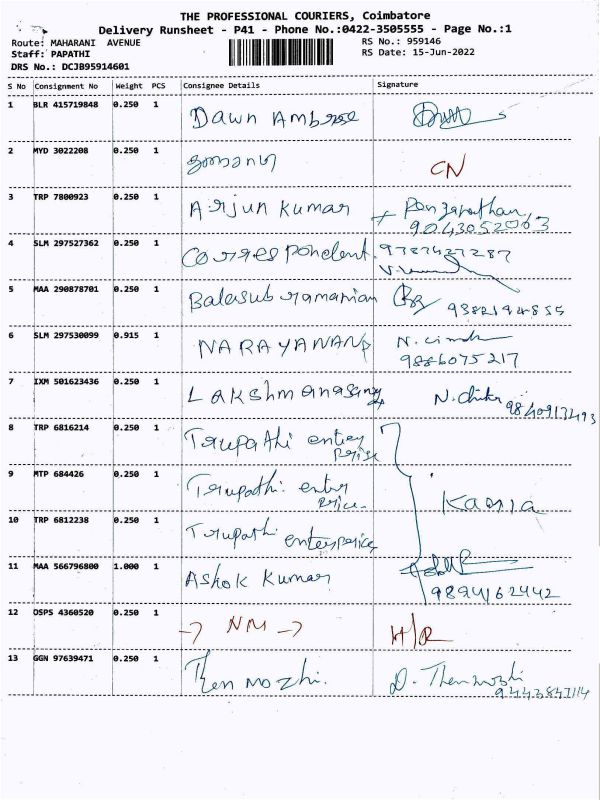 THE PROFESSIONAL COURIERS, Coimbatore
Delivery Runsheet - P41 - Phone No.:0422-3505555 - Page No.:1
Route: MAHARANI AVENUE
Staff: PAPATHI
DRS No.: DCJB95914601
RS No.: 959146
RS Date: 15-Jun-2022
S No Consignment No Weight PCS Consignee Details Signature
1 BLR 415719848 0.250 1 Dawn Ambrose
2 MYD 3022208 0.250 1 CN
3 TRP 7800923 0.250 1 Arjun Kumar
9043052003
4 SLM 297527362 0.250 1 Correspondent. 9787427287
5 MAA 290878701 0.250 1 Balasubramanian 9382194855
6 SLM 297530099 0.915 1 NARAYANAN N.
9886075217
7 IXM 501623436 0.250 1 Lakshmanasamy N. 9840913493
8 TRP 6816214 0.250 1 Tirupathi enter
prise
9 MTP 684426 0.250 1 Tirupathi enter
price
10 TRP 6812238 0.250 1 Tirupathi enterprice
11 MAA 566796800 1.000 1 Ashok Kumar
9894162442
12 OSPS 4360520 0.250 1 → NM → H/R
13 GGN 97639471 0.250 1 Thenmozhi. D. Thenmozhi